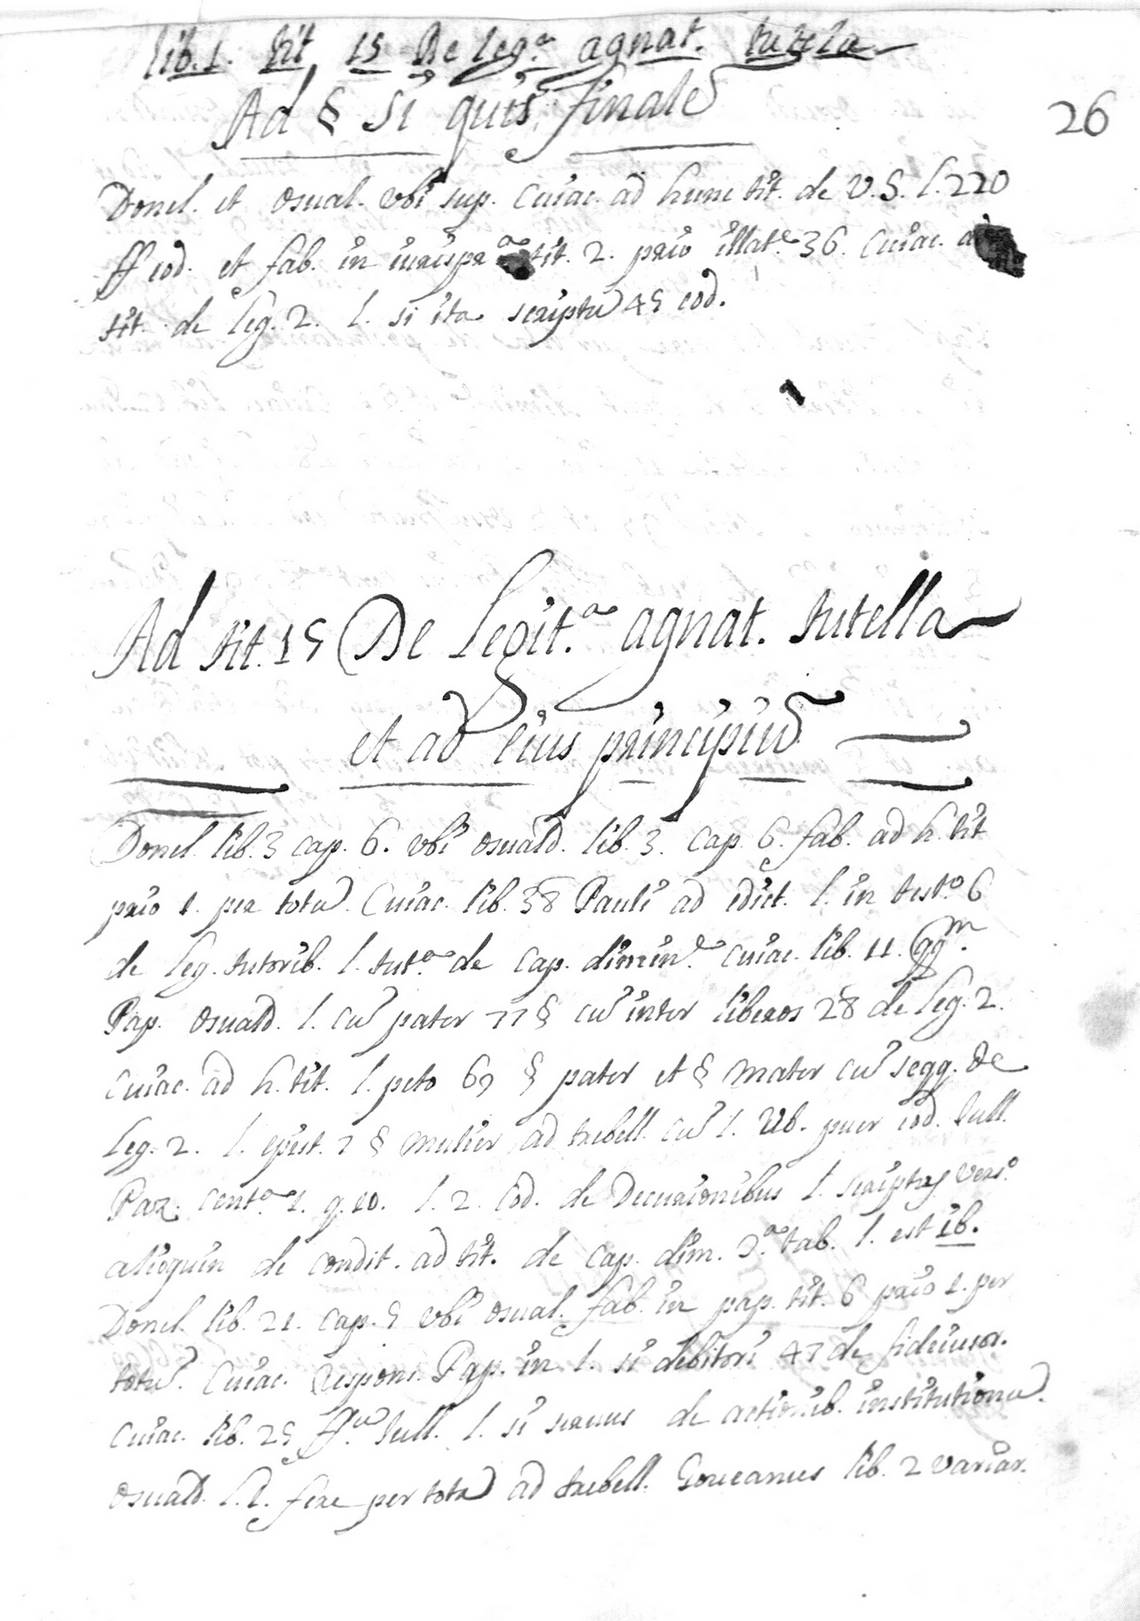 lib. 1. tit 15 De leg.ª agnat. tutela
Ad § Si quis finale
26
Donel. et osual. vbi sup. Cuiac. ad hunc tit. de V. S. l. 220
ff eod. et fab. in iurispr.ª tit. 2. prio illat.e 36. Cuiac. a
tit. de leg. 2. l. si ita scriptu 45 eod.
Ad tit. 15 De Legit.ª agnat. tutella
et ad eius principiu
Donel. lib. 3 cap. 6. vbi osuald. lib. 3. cap. 6. fab. ad h. tit
prio 1. per totu. Cuiac. lib. 38 Pauli ad edict. l. in test.o 6
de leg. tutorib. l. tut.ª de cap. dimin.e Cuiac. lib. 11. qq.m
Pap. osuald. l. cu pater 77 § cu inter liberos 28 de leg. 2.
Cuiac. ad h. tit. l. peto 69 § pater et § mater cu seqq. de
leg. 2. l. epist. 7 § mulier ad trebell. cu l. Ub. puer eod. Iull.
Paz. cent.ª 1. q. 10. l. 2. Cod. de Decurionibus l. scriptus vers.o
alioquin de condit. ad tit. de cap. dim. 2.ª tab. l. est ib.
Donel. lib. 21. cap. 5 vbi osual. fab. in pap. tit. 6 prio 1. per
totu. Cuiac. respons. Pap. in l. si debitori 47 de fideiussor.
Cuiac. lib. 25 Iull. l. si seruus de actionib. institutionu.
osuald. l. 1. fere per totu ad trebell. Goueanus lib. 2 variar.